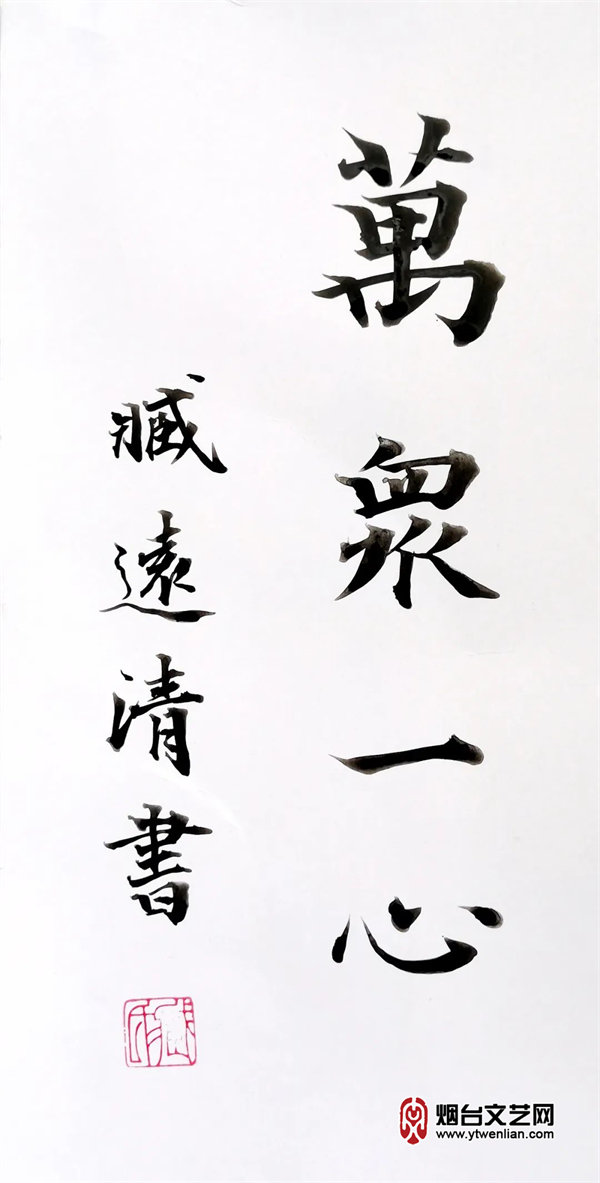 萬眾一心
臧遠清書
烟台文艺网
www.ytwenlian.com